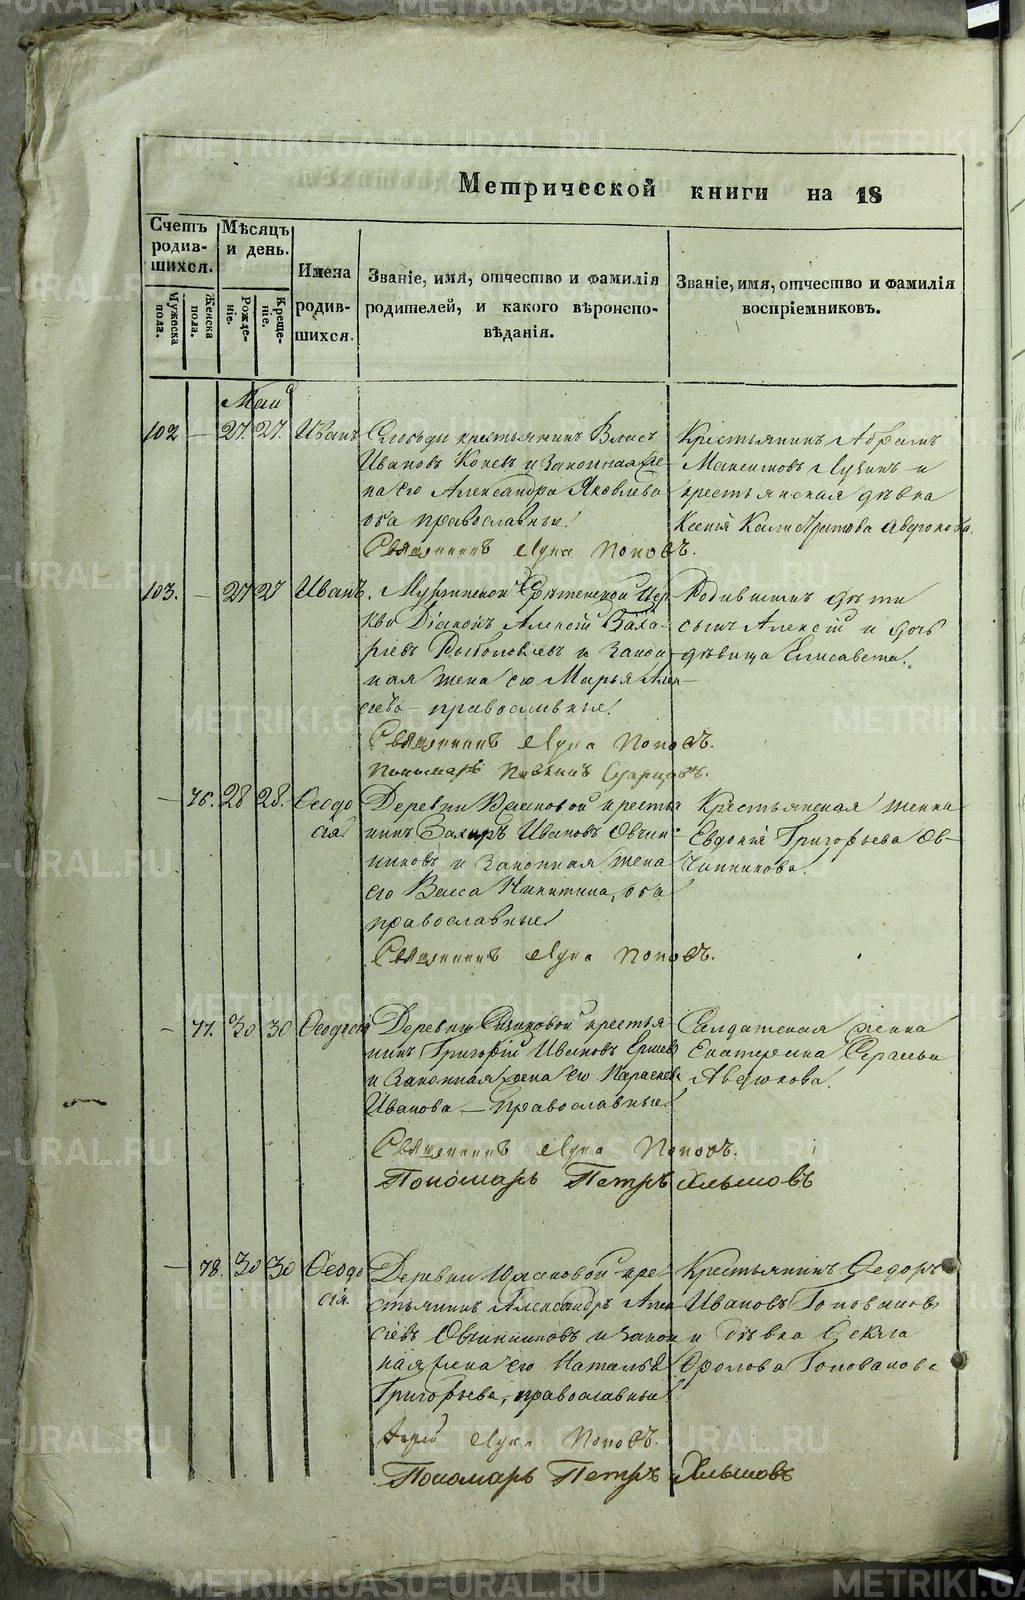 Метрической книги на 18
Счетъ родившихся.
Мѣсяцъ и день.
Имена родившихся.
Званіе, имя, отчество и фамилія родителей, и какого вѣроисповѣданія.
Званіе, имя, отчество и фамилія воспріемниковъ.
Мужеска пола.
Женска пола.
Рожденіе.
Крещеніе.
Май
102 — 27. 27. Иванъ
Слободы крестьянинъ Власъ
Ивановъ Коневъ и законная же-
на его Александра Яковлева
оба православные.
Священникъ Лука Поповъ.
Крестьянинъ Абрамъ
Максимовъ и
крестьянская дѣвка
Ксенія Калистратова Авдюкова.
103. — 27 27 Иванъ.
Срѣтенской Цер-
кви Діаконъ Алексій Заха-
ріевъ и закон-
ная жена его Марья Алек-
сѣева — православные.
Священникъ Лука Поповъ.
Пономарь Старцовъ.
Родившихъ дѣти
сынъ Алексій и дочь
дѣвица Елисавета.
— 76. 28 28. Ѳеодо
сія
Деревни крестья
нинъ Захаръ Ивановъ Овчин-
никовъ и законная жена
его Васса Никитина, оба
православные
Священникъ Лука Поповъ.
Крестьянская женка
Евдокія Григорьева Ов-
чинникова.
— 77. 30 30 Ѳеодосія
Деревни крестья-
нинъ Григорій Ивановъ Ершовъ
и законная жена его Параскева
Иванова — православные.
Священникъ Лука Поповъ.
Пономарь Петръ Хлыновъ
Салдатская женка
Екатерина Сергѣева
Авдюкова.
— 78. 30 30 Ѳеодо
сія.
Деревни кре-
стьянинъ Александръ Алек-
сѣевъ Овчинниковъ и закон
ная жена его Наталья
Григорьева, православные
Іерей Лука Поповъ.
Пономарь Петръ Хлыновъ
Крестьянинъ Ѳедоръ
Ивановъ Головановъ
и дѣвка Ѳекла
Фролова Голованова
METRIKI.GASO-URAL.RU